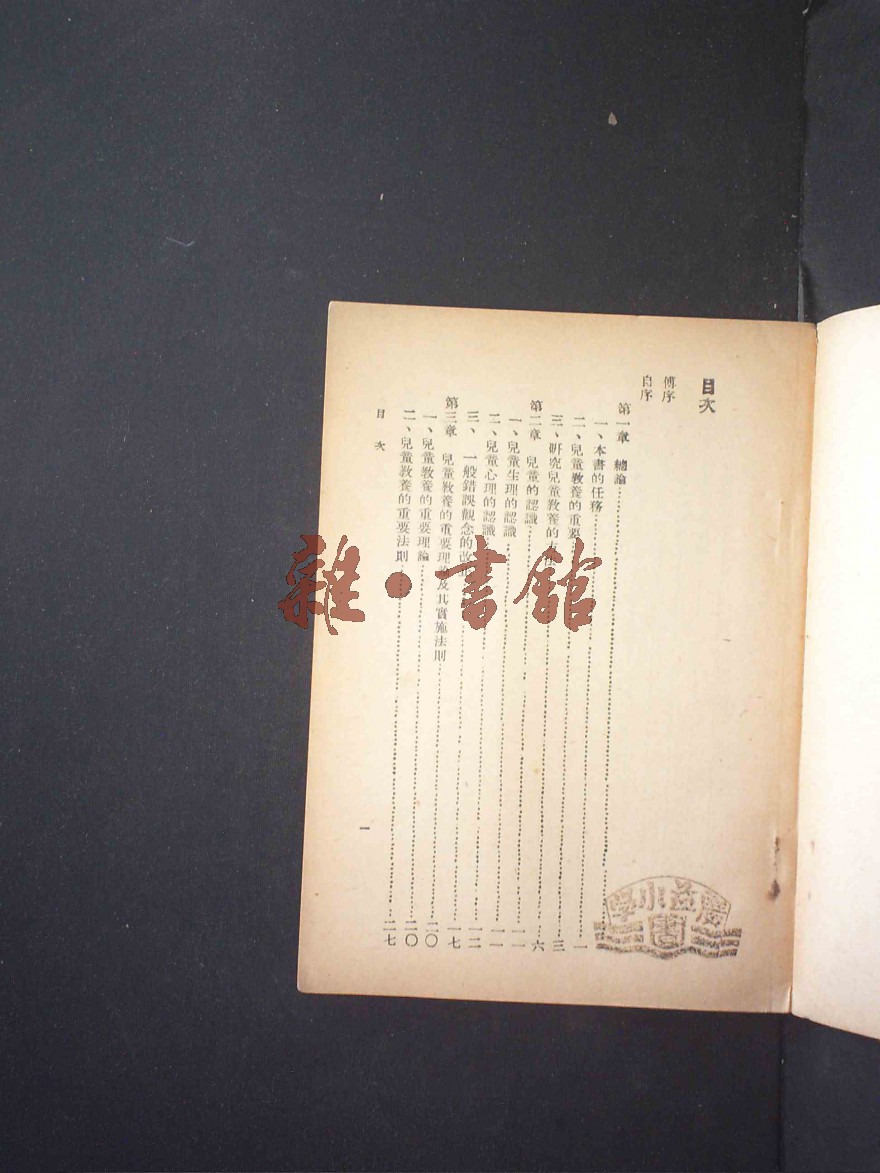 目次
傅序
自序
第一章 總論……
一、本書的任務……一
二、兒童教養的重要……三
三、研究兒童教養的……六
第二章 兒童的認識……一一
一、兒童生理的認識……一一
二、兒童心理的認識……一二
三、一般錯誤觀念的改……一七
第三章 兒童教養的重要理論及其實施法則……二〇
一、兒童教養的重要理論……二〇
二、兒童教養的重要法則……二七
目 次
一
益小學
書
雜·書館